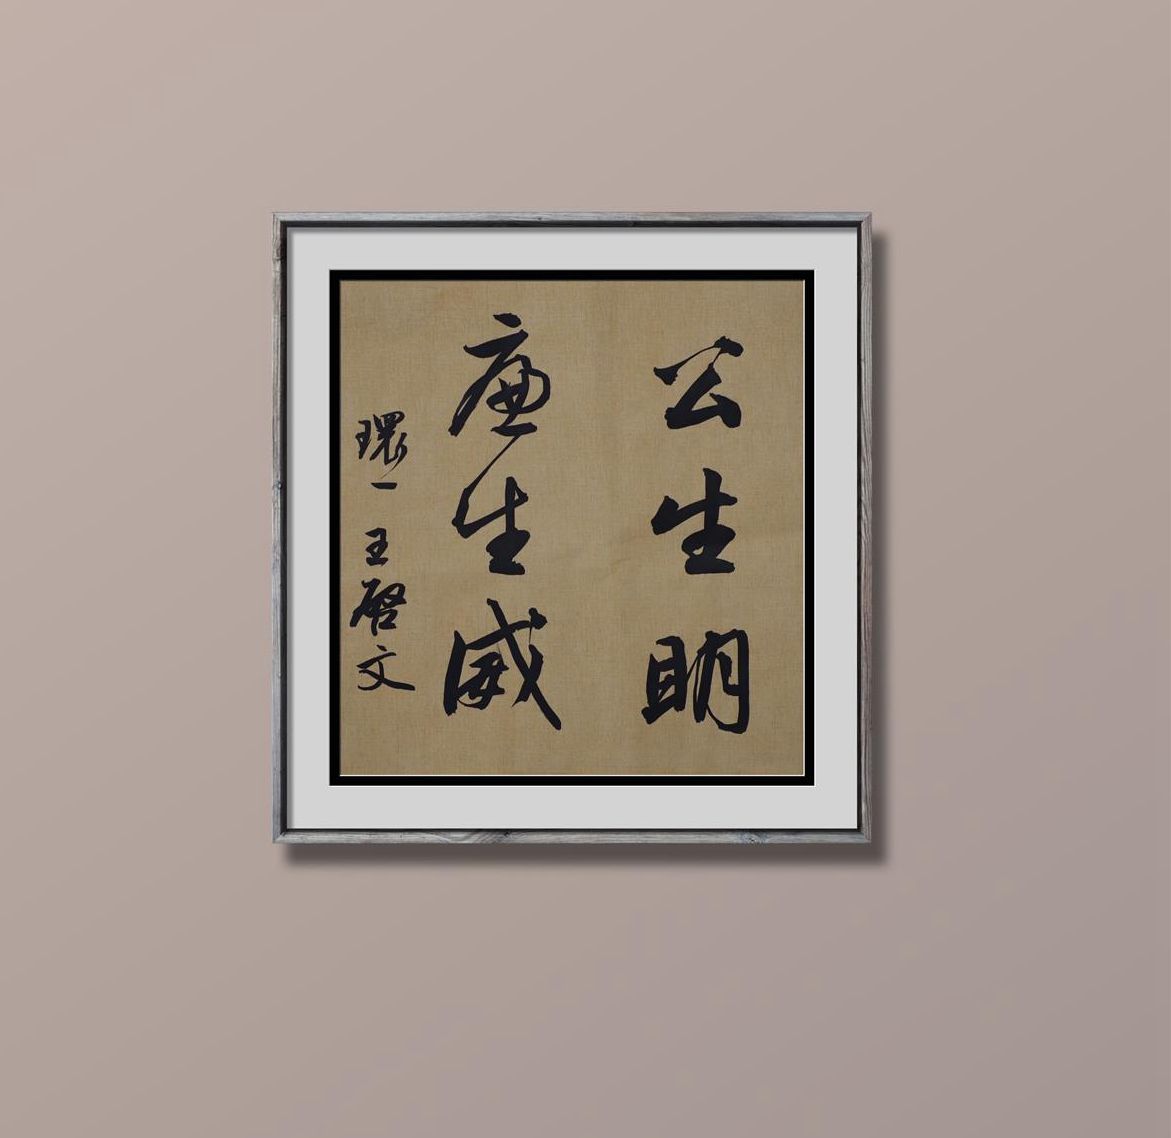 公生明
廉生威
環一 王啓文